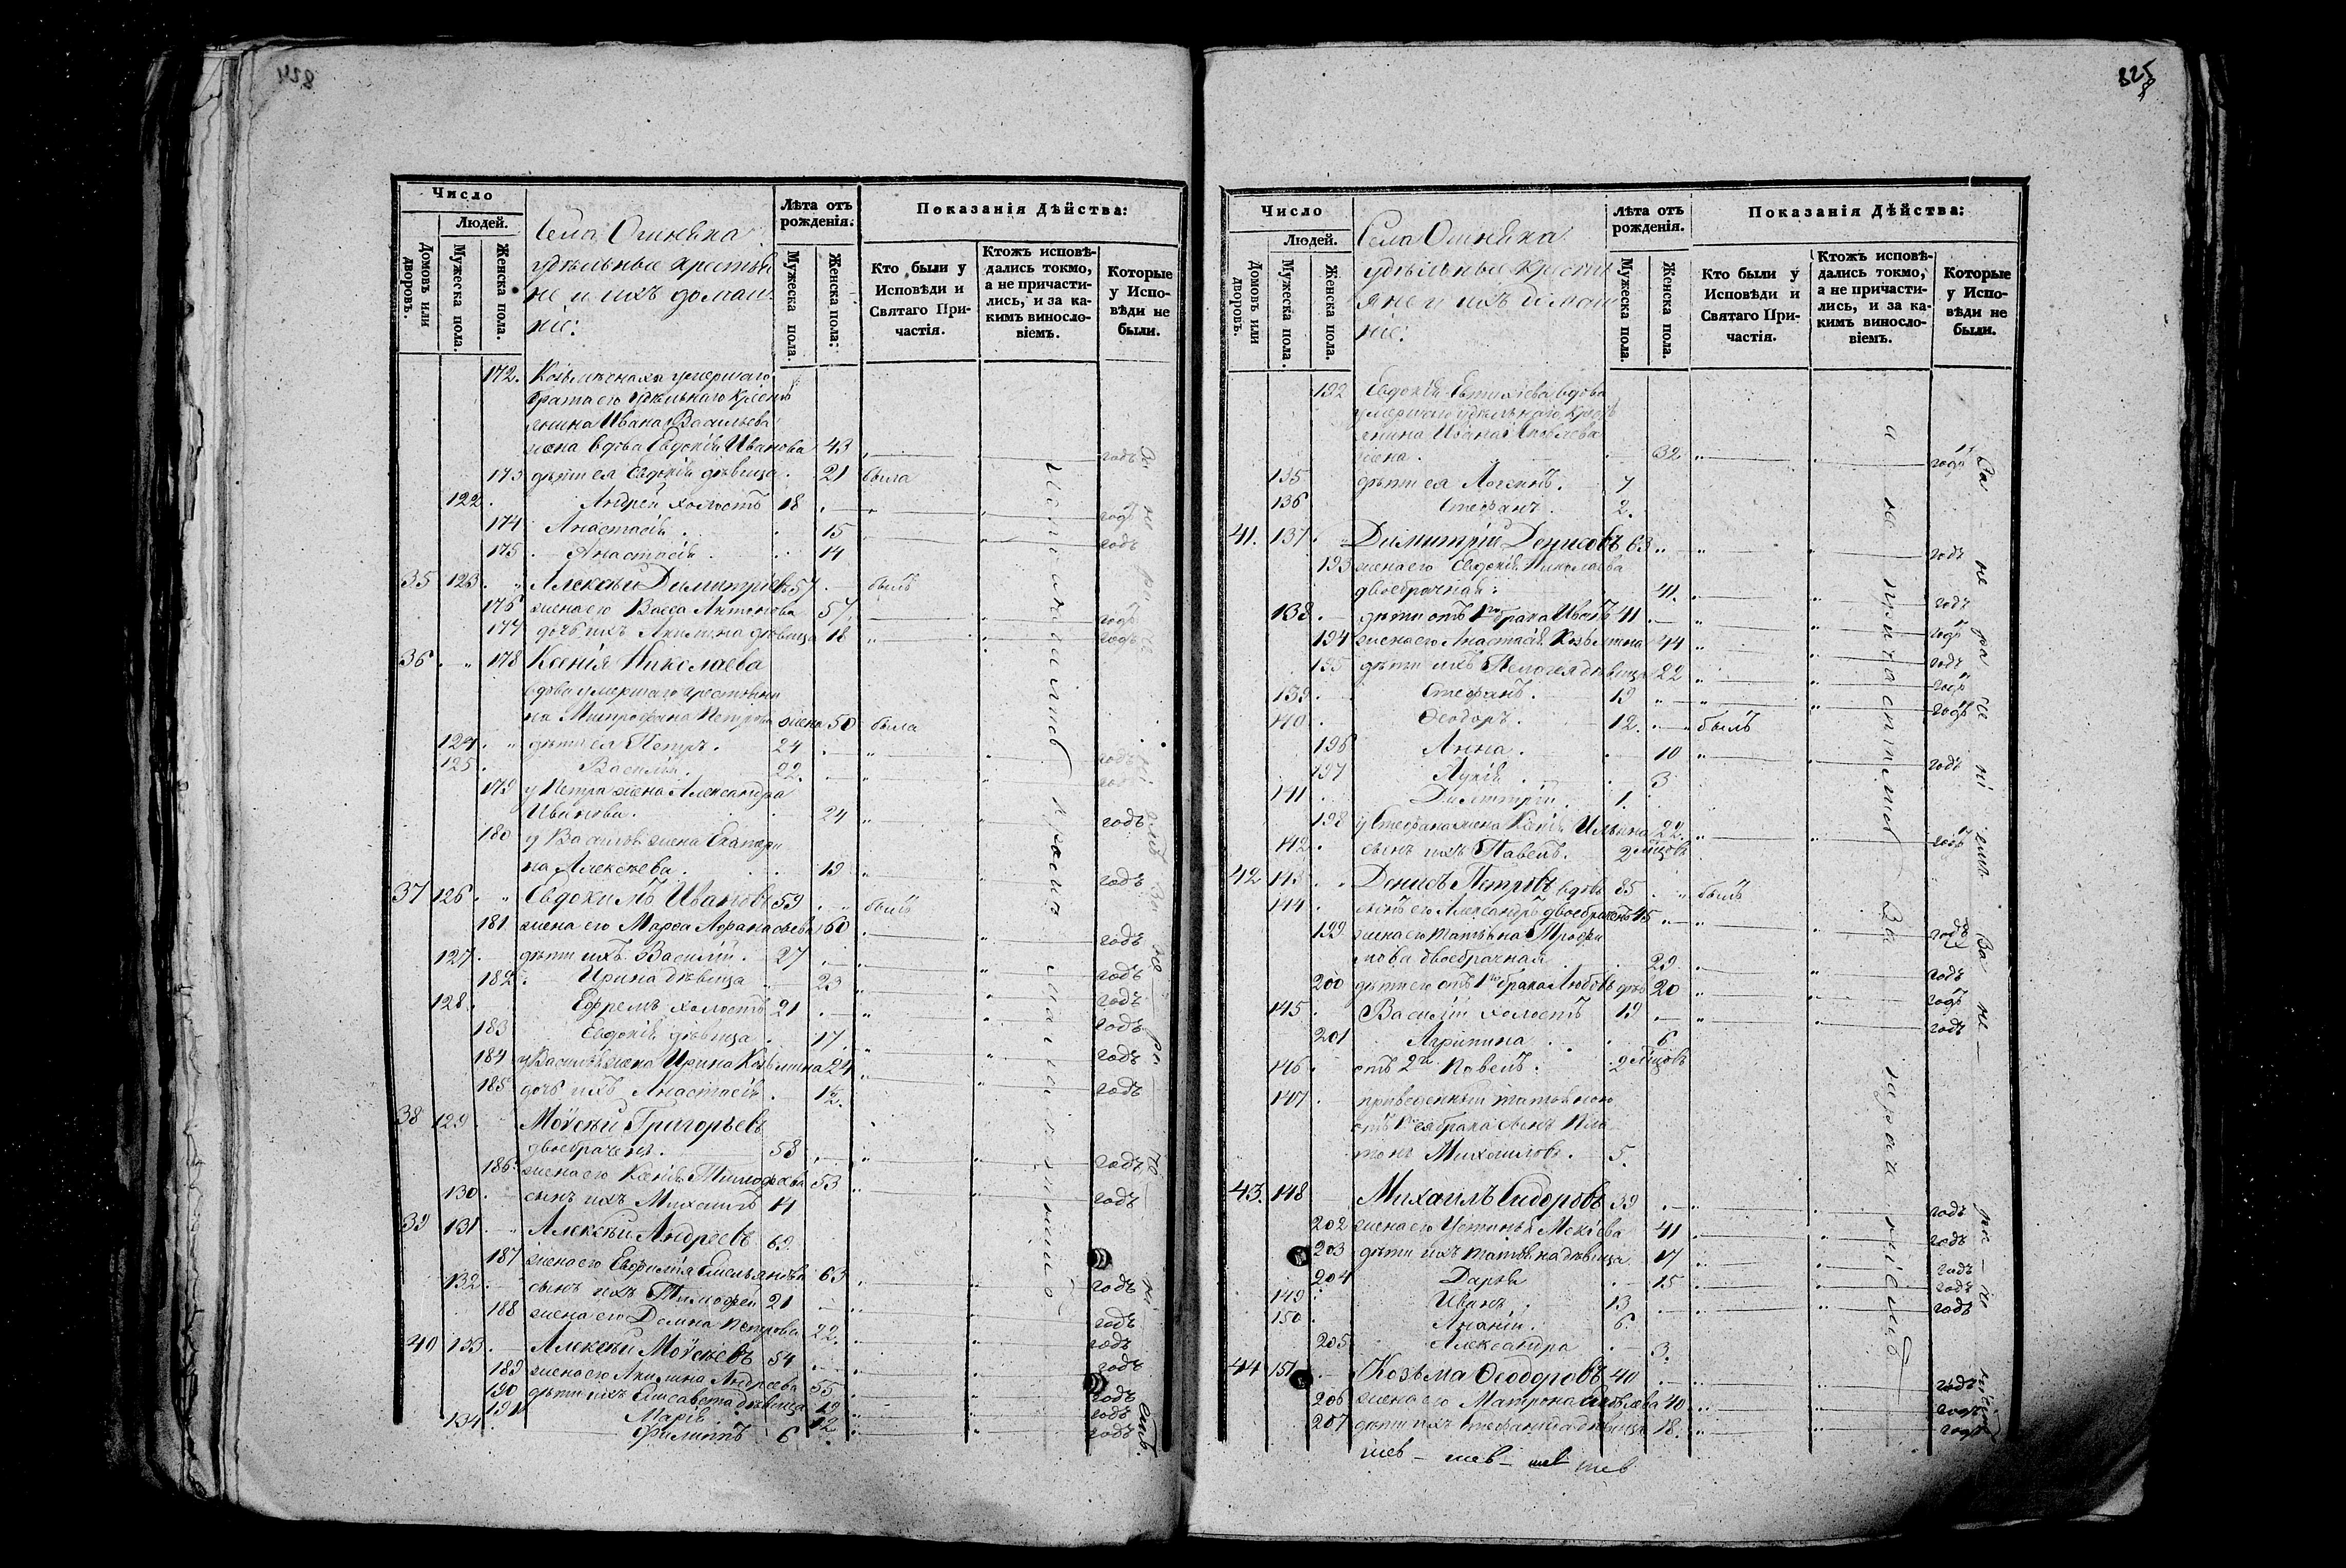 824
Число
Людей.
Домовъ или дворовъ.
Мужеска пола.
Женска пола.
Села
удѣльные крестья
не и ихъ домаш
ніе:
Лѣта отъ рожденія.
Мужеска пола.
Женска пола.
Показанія Дѣйства:
Кто были у Исповѣди и Святаго Причастія.
Ктожъ исповѣдались токмо, а не причастились, и за какимъ винословіемъ.
Которые у Исповѣди не были.
172. умершаго
брата его удѣльнаго крестья
янина Ивана Васильева
жена вдова Евдокія Иванова 43 годъ
173 дѣти ея Евдокія дѣвица 21 была
122. Андрей холостъ 18 годъ
174 Анастасія 15 годъ
175 Анастасія 14
35 123 Алексѣй Димитріевъ 57 былъ
176 жена его Васса Антонова 57 годъ
177 дочь ихъ Акилина дѣвица 18 годъ
36 178 Ксенія Николаева
вдова умершаго крестьяни
на Митрофана Петрова жена 50 была
124 дѣти ея Петръ. 24 годъ
125 Василій. 22.
179 у Петра жена Александра
Иванова. 24 годъ
180 у Василья жена Екатери
на Алексѣева. 19 годъ
37 126 Евдокимъ Ивановъ 59 былъ
181 жена его Марѳа Аѳанасьева 60 годъ
127. дѣти ихъ Василій. 27 годъ
182. Ирина дѣвица 23 годъ
128. Ефремъ холостъ 21 годъ
183 Евдокія дѣвица 17. годъ
184 у Василья жена Ирина Козьмина 24 годъ
185 дочь ихъ Анастасія. 1/2.
38 129 Моѵсей Григорьевъ
двоебраченъ. 58 годъ
186 жена его Ксенія Тимофеева 53 годъ
130. сынъ ихъ Михаилъ 14
39 131 Алексѣй Андреевъ 69.
187 жена его Евфимія Емельянова 63 годъ
132. сынъ ихъ Тимофей 21 годъ
188 жена его Домна Петрова 22. годъ
40 133. Алексѣй Моѵсеевъ 54 годъ
189 жена его Акилина Андреева 55 годъ
190 дѣти ихъ Елисавета дѣвица 19 годъ
191 Марія 12 годъ
134 Филиппъ 6
825
Число
Людей.
Домовъ или дворовъ.
Мужеска пола
Женска пола.
Села
удѣльные кресть
яне и ихъ домаш
ніе:
Лѣта отъ рожденія.
Мужеска пола.
Женска пола.
Показанія Дѣйства:
Кто были у Исповѣди и Святаго Причастія.
Ктожъ исповѣдались токмо, а не причастились, и за какимъ винословіемъ.
Которые у Исповѣди не были.
192 Евдокія вдова
умершаго удѣльнаго кресть
янина Ивана Яковлева
жена. 32 годъ
135 дѣти ея Логинъ. 7
136 Стефанъ. 2.
41. 137. Димитрій Денисовъ 63 годъ
193 жена его Евдокія Николаева
двоебрачная: 41. годъ
138. дѣти отъ 1го брака Иванъ 41 годъ
194 жена его Анастасія Козьмина 44 годъ
195 дѣти ихъ Пелагея дѣвица 22 годъ
139. Стефанъ. 19 годъ
140. Ѳеодоръ. 12. былъ
196 Анна. 10 годъ
197 Лукія 3
141 Димитрій. 1.
198 у Стефана жена Ксенія Ильина 22. годъ
142. сынъ ихъ Павелъ. 2 мѣцовъ
42 143. Денисъ Петровъ вдовъ 85 былъ
144 сынъ его Александръ двоебраченъ 45 годъ
199 жена его Татьяна Трофи
мова двоебрачная 29 годъ
200 дѣти его отъ 1го брака Любовь дѣв 20 годъ
145. Василій холостъ 19 годъ
201 Агрипина 6
146 отъ 2го Павелъ. 2 мѣцовъ
147 приведенный Татьяною
отъ 1го брака сынъ Пла
тонъ Михаиловъ. 5.
43. 148 Михаилъ Сидоровъ 39 годъ
202 жена его Устинья 41 годъ
203 дѣти ихъ Татьяна дѣвица 17 годъ
204 Дарья 15 годъ
149 Иванъ. 13 годъ
150. Ананій. 6.
205 Александра 3.
44 151 Козьма Ѳеодоровъ 40 годъ
206 жена его Матрона 40 годъ
207 дѣти ихъ Стефанида дѣвица 18. годъ